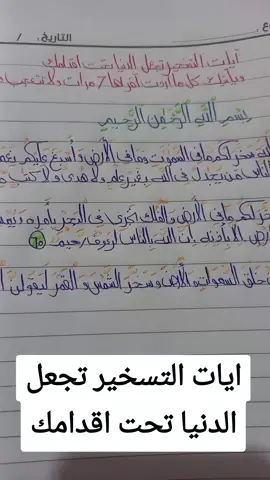 التاريخ: /
آيات التسخير تجعل الدنيا تحت اقدامك
ويأتيك كل ما أردت أقرأها 7 مرات ولا تتعجب
بِسْمِ اللَّهِ الرَّحْمَنِ الرَّحِيمِ
سخر لكم ما في السموت وما في الأرض وأسبغ عليكم
الناس من يجدل في الله بغير علم ولا هدى ولا كتب
لكم ما في الأرض والفلك تجري في البحر بأمره
الأرض إلا بإذنه إن الله بالناس لرءوف رحيم 65
خلق السموات والأرض وسخر الشمس والقمر ليقولن
ايات التسخير تجعل
الدنيا تحت اقدامك